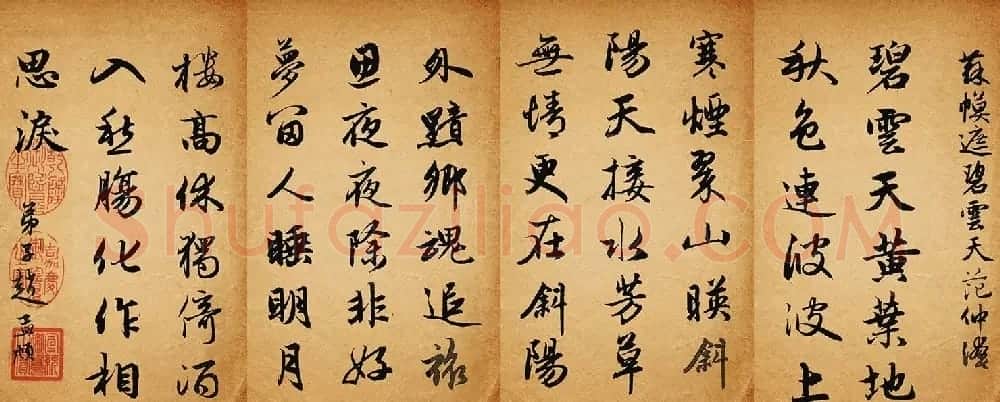 蘇幙遮碧雲天范仲淹
碧雲天黄葉地
秋色連波波上
寒煙翠山暎斜
陽天接水芳草
無情更在斜陽
外黯鄉魂追旅
思夜夜除非好
夢留人睡明月
樓高休獨倚酒
入愁腸化作相
思淚
弟子趙孟頫
Shufaziliao.COM